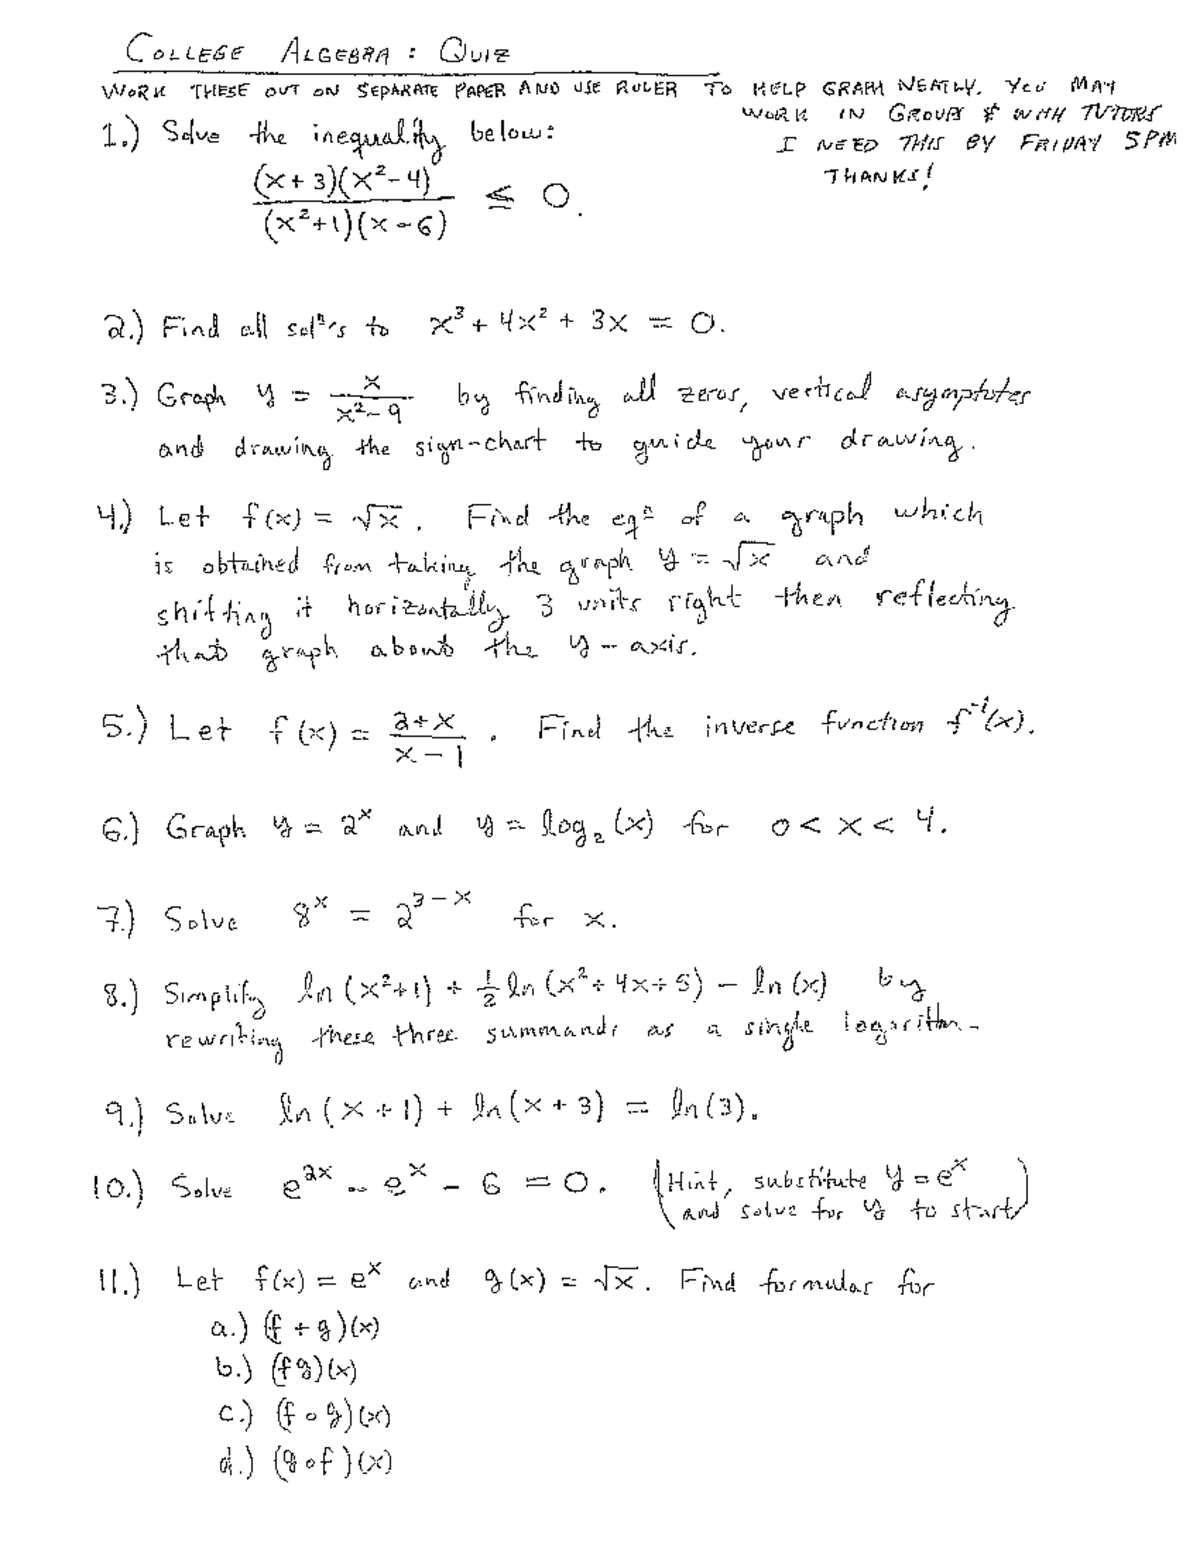 COLLEGE ALGEBRA : QUIZ
WORK THESE OUT ON SEPARATE PAPER AND USE RULER TO HELP GRAPH NEATLY. YOU MAY
WORK IN GROUPS & WITH TUTORS
I NEED THIS BY FRIDAY 5PM
THANKS!
1.) Solve the inequality below:
(x+3)(x²-4) / (x²+1)(x-6) ≤ 0.
2.) Find all solⁿ's to x³ + 4x² + 3x = 0.
3.) Graph y = x / x²-9 by finding all zeros, vertical asymptotes
and drawing the sign-chart to guide your drawing.
4.) Let f(x) = √x. Find the eqⁿ of a graph which
is obtained from taking the graph y = √x and
shifting it horizontally 3 units right then reflecting
that graph about the y-axis.
5.) Let f(x) = 2+x / x-1. Find the inverse function f⁻¹(x).
6.) Graph y = 2ˣ and y = log₂(x) for 0 < x < 4.
7.) Solve 8ˣ = 2³⁻ˣ for x.
8.) Simplify ln(x²+1) + ½ ln(x²+4x+5) - ln(x) by
rewriting these three summands as a single logarithm.
9.) Solve ln(x+1) + ln(x+3) = ln(3).
10.) Solve e²ˣ - eˣ - 6 = 0. (Hint, substitute y = eˣ
and solve for y to start)
11.) Let f(x) = eˣ and g(x) = √x. Find formulas for
a.) (f + g)(x)
b.) (fg)(x)
c.) (f ∘ g)(x)
d.) (g ∘ f)(x)